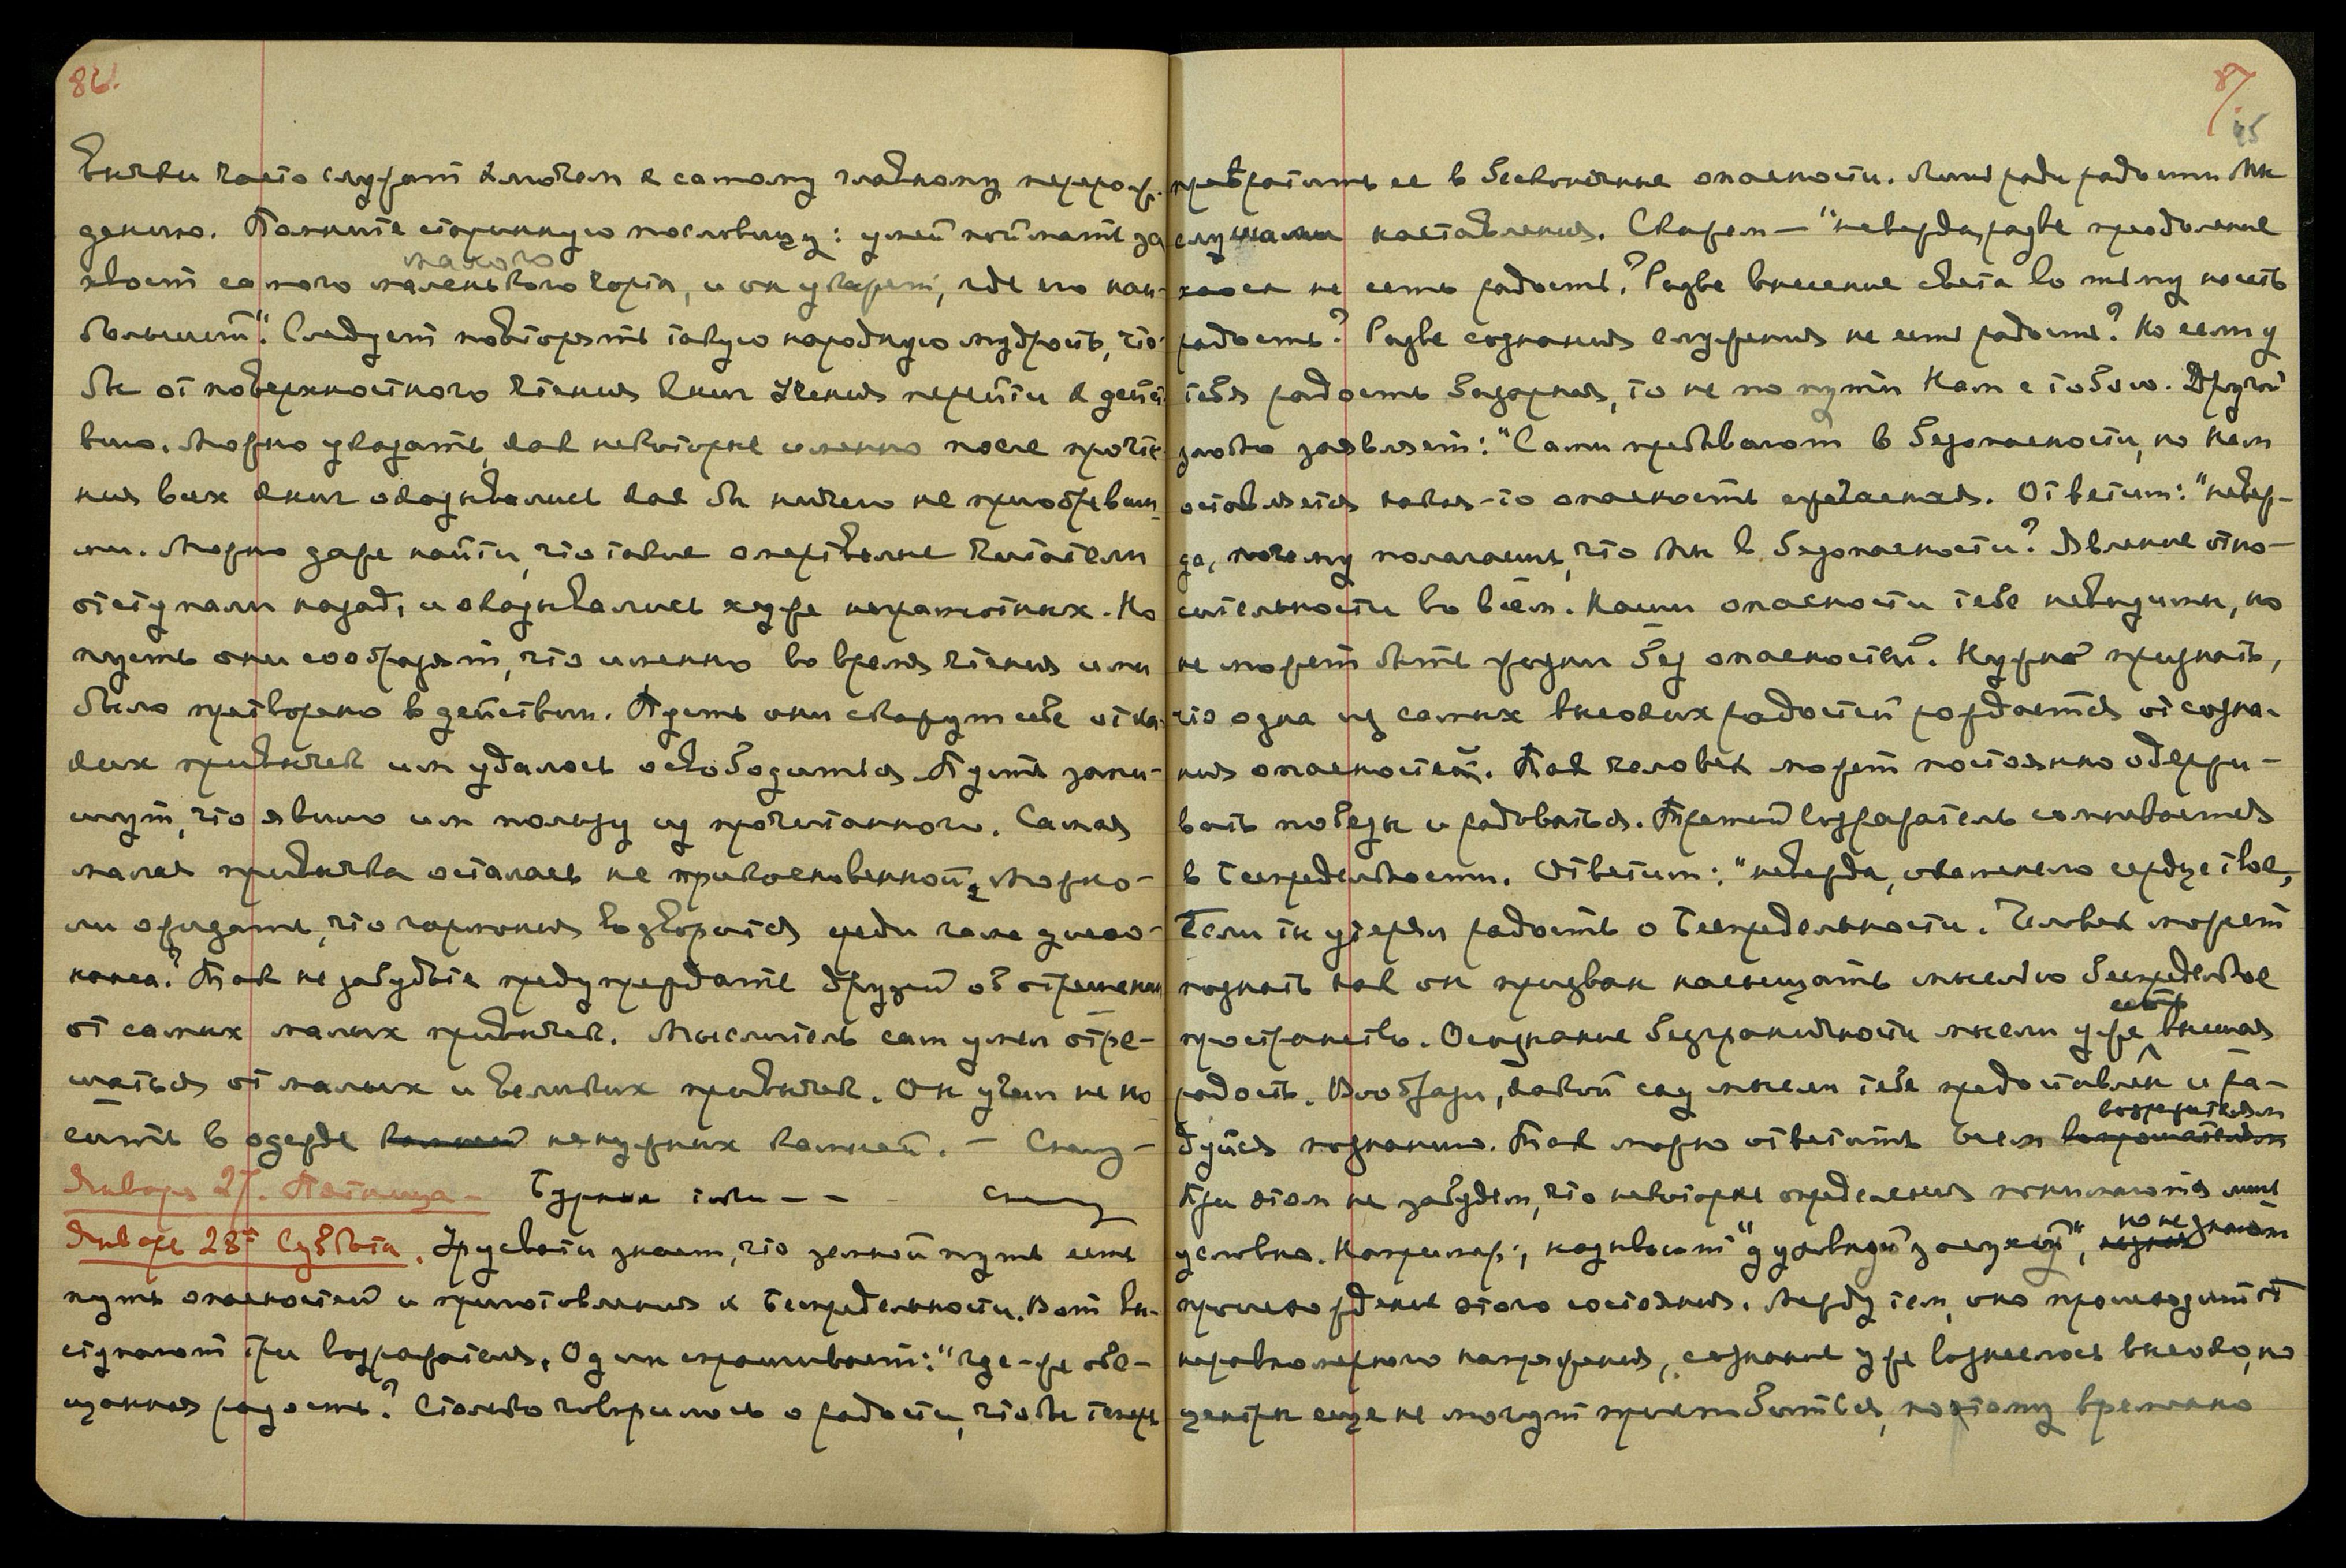 86.
вычки часто служат ключом к самому главному перерож-
дению. Помните старинную пословицу: умей поймать за
малого
хвост самого маленького чорта, и он укажет, где его наи-
больший". Следует повторять такую народную мудрость, что-
бы от поверхностного чтения книг Учения перейти к дейст-
вию. Можно указать, как некоторые именно после прочте-
ния всех книг оказывались как бы ничего не приобревши-
ми. Можно даже найти, что такие омертвелые читатели
отступали назад, и оказывались хуже неграмотных. Но
пусть они сообразят, что именно во время чтения ими
было претворено в действии. Пусть они скажут себе от ка-
ких привычек им удалось освободиться. Пусть запи-
шут, что явило им пользу из прочитанного. Самая
малая привычка осталась не прикосновенной. Можно-
ли ожидать, что гармония водворится среди гама диссо-
нанса? Так не забудьте предупреждать друзей об отрешении
от самых малых привычек. Мыслитель сам умел отре-
шаться от малых и великих привычек. Он учил не но
сить в одежде камней ненужных камней. — Снег —
Январь 27. Пятница — Бурные токи — — снег
Январь 28й Суббота. Урусвати знает, что земной путь есть
путь опасностей и приготовления к Беспредельности. Вот вы-
ступают три возражателя. Один спрашивает: "где-же обе-
щанная радость? Столько говорилось о радости, чтобы теперь
87
45
превратить ее в бесконечные опасности. Лишь ради радости Мы
слушали наставления. Скажем — "невежда, разве преодоление
хаоса не есть радость? Разве внесение света во тьму не есть
радость? Разве сознания служения не есть радость? Но если у
тебя радость базарная, то не по пути Нам с тобою. Другой
злобно заявляет: "Сами пребывают в безопасности, но нам
оставляется какая-то опасность ужасная. Ответим: "невеж-
да, почему полагаешь, что Мы в безопасности? Явление отно-
сительности во всем. Наши опасности тебе невидимы, но
не может быть жизни без опасностей. Нужно признать,
что одна из самых высоких радостей рождается от созна-
ния опасностей. Так человек может постоянно одержи-
вать победы и радоваться. Третий возражатель сомневается
в Беспредельности. Ответим: "невежда, окаменело сердце твое,
Если ты утерял радость о Беспредельности. Человек может
познать как он призван насыщать мыслью беспредельное
есть
пространство. Осознание безграничности мысли уже высшая
радость. Вообрази, какой сад мысли тебе предоставлен и ра-
возражателям
дуйся познанию. Так можно ответить всем вопрошателям
При этом не забудем, что некоторые определения понимаются лишь
но не знают
условно. Например, называют "духовной засухой",
происхождения этого состояния. Между тем, оно происходит от
неравномерного напряжения, сознание уже вознеслось высоко, но
центры еще не могут приспособиться, поэтому временно